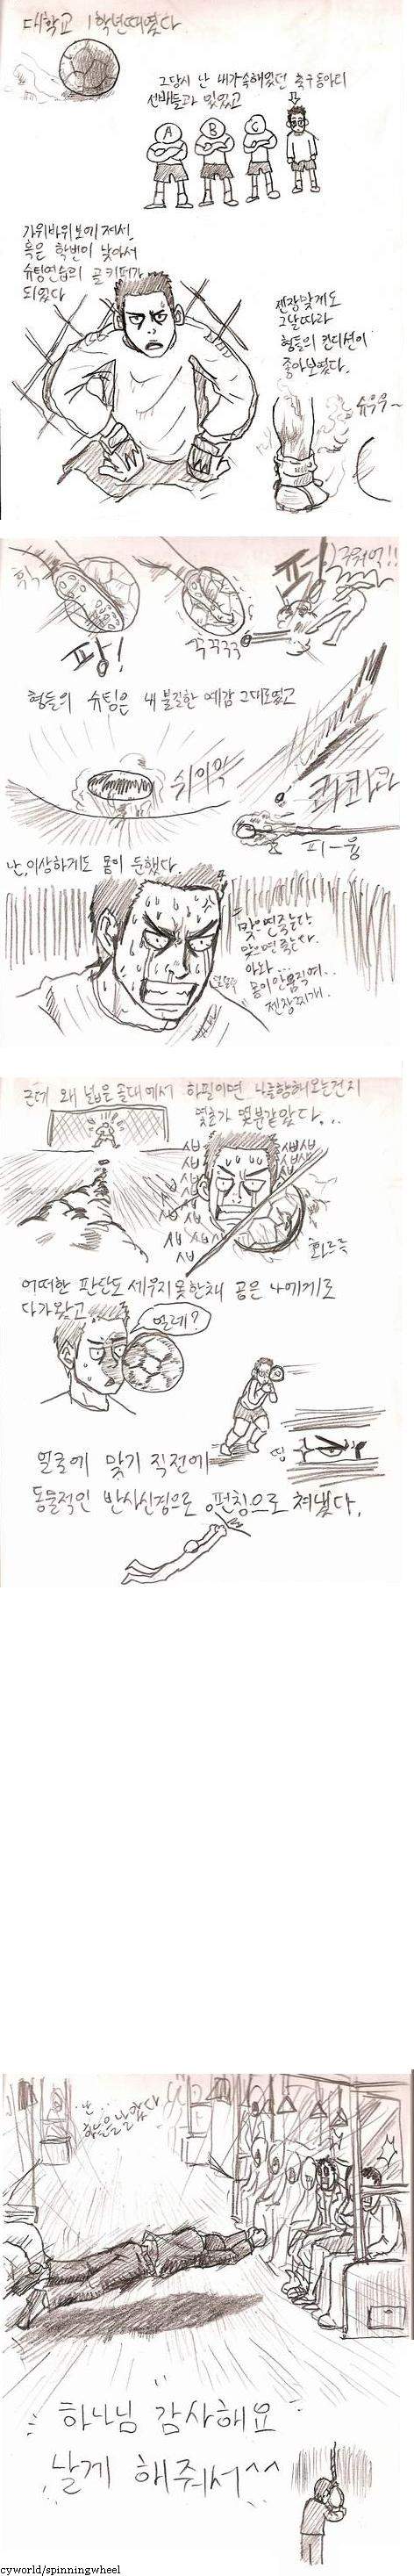 대학교 1학년때였다
그당시 난 내가속해있던 축구동아리
선배들과 있었고
A B C
가위바위보에 져서,
혹은 학번이 낮아서
슈팅연습의 골키퍼가
되었다
젠장맞게도
그날따라
형들의 컨디션이
좋아보였다.
슈우우~
퍼
팡!
꾸꾸꾸
형들의 슈팅은 내 불길한 예감 그대로였고
쉬이익
콰콰콰
피-융
난, 이상하게도 몸이 둔했다.
맞으면죽는다
맞으면죽는다.
아놔...
몸이안움직여..
젠장찌개.
근데 왜 넓은 골대에서 하필이면 나를향해오는건지
몇초가 몇분같았다...
화르륵
어떠한 판단도 세우지못한채 공은 나에게로
다가왔고
얼레?
얼굴에 맞기 직전에
띵
동물적인 반사신경으로 펀칭으로 쳐냈다.
난...
하늘을날았다
하나님 감사해요
날게 해줘서^^
cyworld/spinningwheel